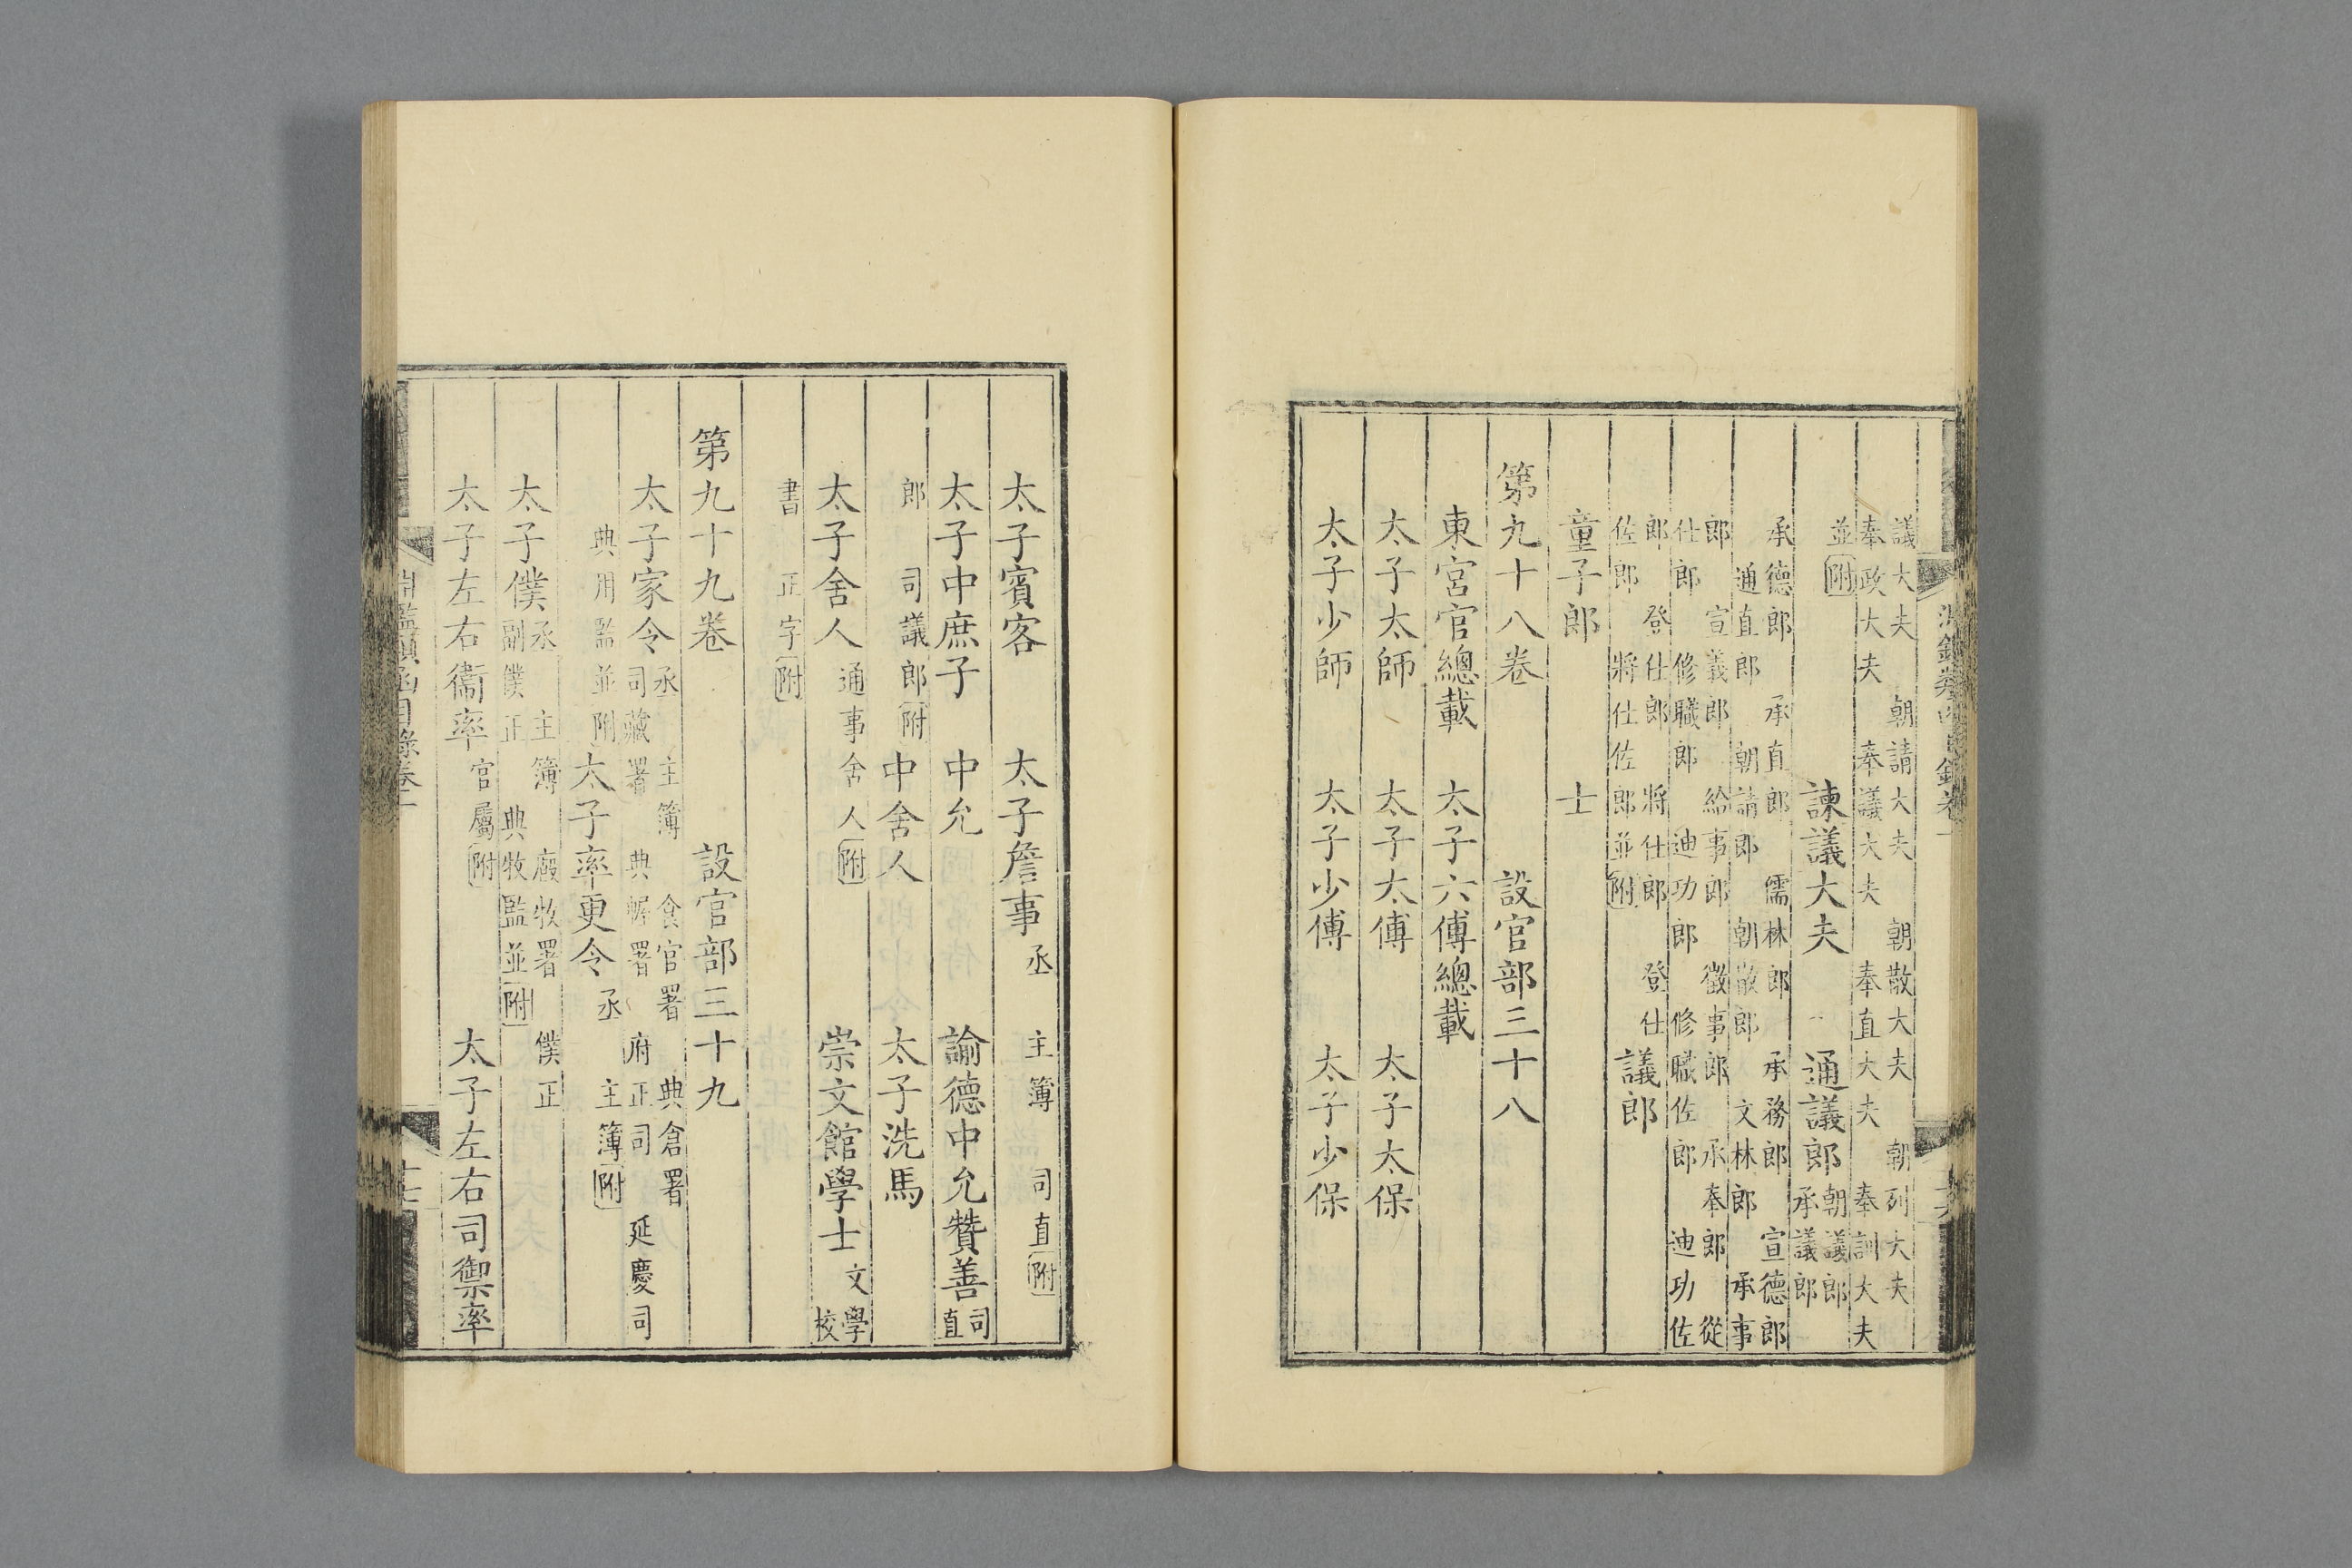 議大夫 朝請大夫 朝散大夫 朝列大夫
奉政大夫 奉議大夫 奉直大夫 奉訓大夫
並附 諫議大夫 通議郎 朝議郎 承議郎
承德郎 承直郎 儒林郎 承務郎 宣德郎
通直郎 朝請郎 朝散郎 文林郎 承事
郎 宣義郎 給事郎 徵事郎 承奉郎 從
仕郎 修職郎 迪功郎 修職佐郎 迪功佐
郎 登仕郎 將仕郎 登仕
佐郎 將仕佐郎並附 議郎
童子郎 士
第九十八卷 設官部三十八
東宮官總載 太子六傅總載
太子太師 太子太傅 太子太保
太子少師 太子少傅 太子少保
太子賓客 太子詹事 丞 主簿 司直附
太子中庶子 中允 諭德中允贊善 司直
郎 司議郎附 中舍人 太子洗馬
太子舍人 通事舍人附 崇文館學士 文學 校
書 正字附
第九十九卷 設官部三十九
太子家令 丞 主簿 食官署 典倉署
司藏署 典幄署 府正司 延慶司
典用監並附 太子率更令 丞 主簿附
太子僕 丞 主簿 廄牧署 僕正
副僕正 典牧監並附
太子左右衞率 官屬附 太子左右司禦率
淵鑑類函目錄卷一
十七